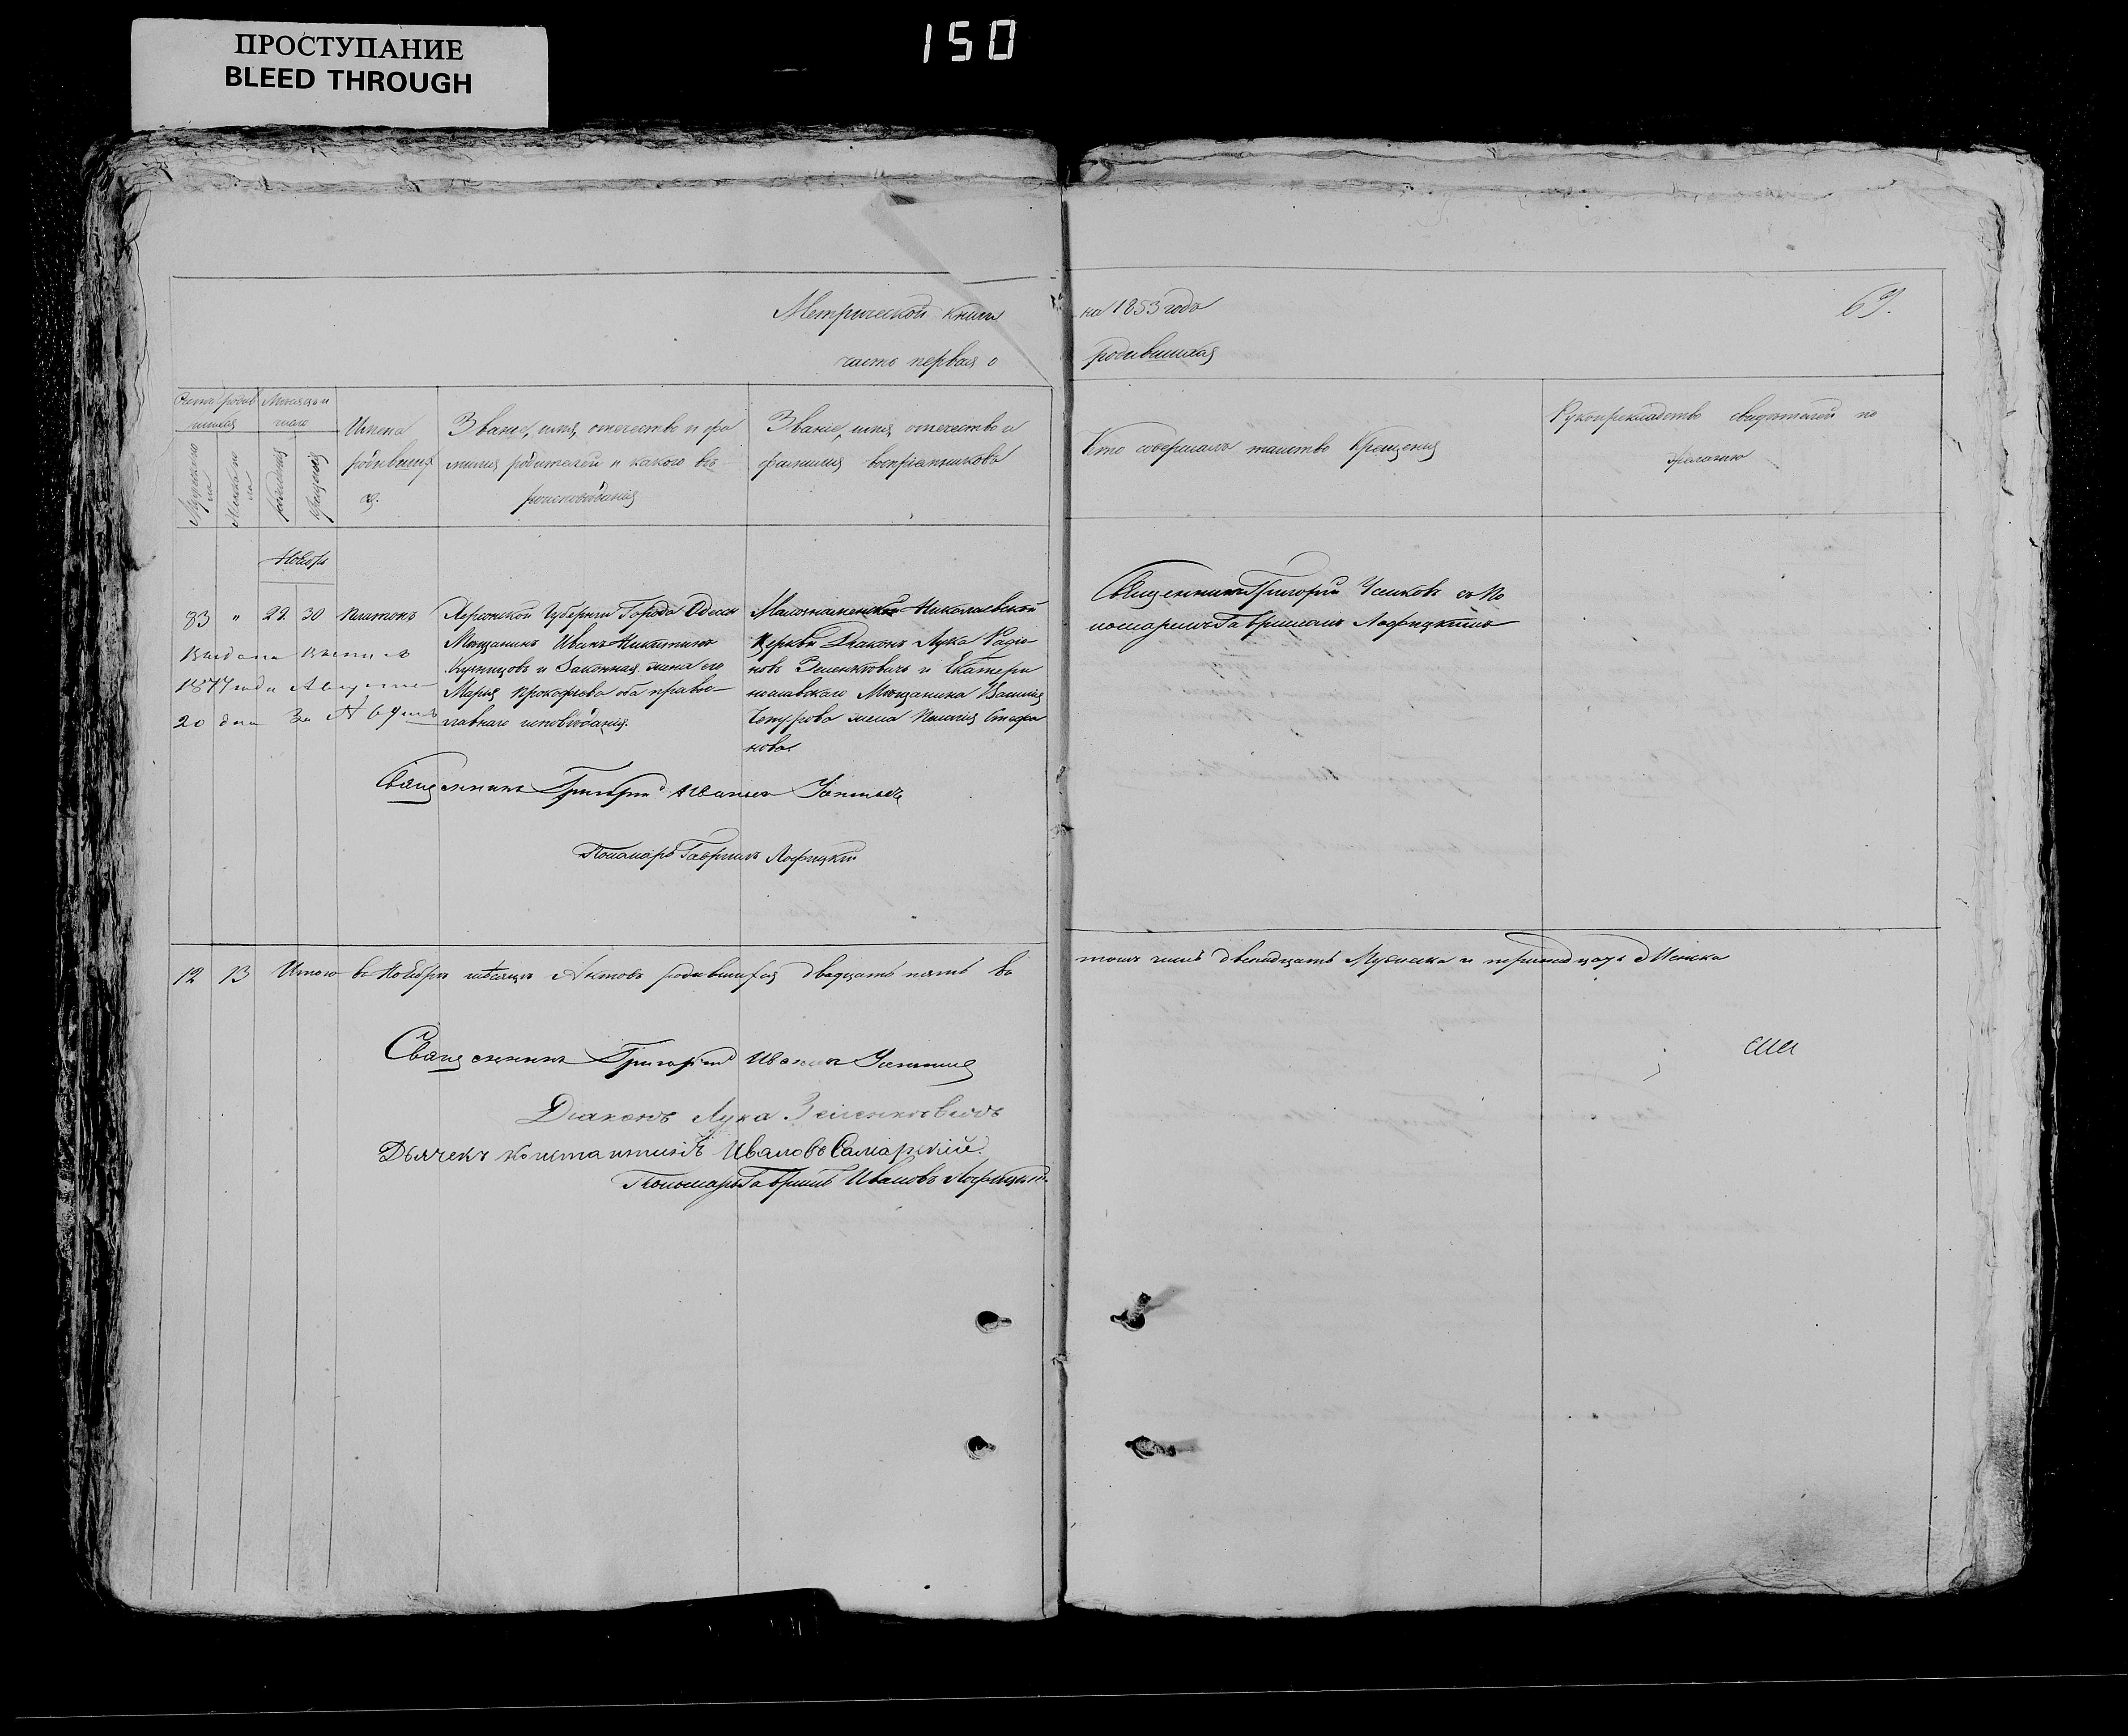 ПРОСТУПАНИЕ
BLEED THROUGH
150
Метрической книги на 1853 годъ
69.
часть первая о родившихся
Счетъ родив
шихся
Мѣсяцъ и
число
Мужеска по
ла
Женска по
ла
рожденія
крещенія
Имена
родивших
ся.
Званіе, имя, отечество и фа
милия родителей и какого вѣ-
роисповѣданія
Званіе, имя, отечество и
фамилия воспріемниковъ
Кто совершалъ таинство Крещенія
Рукоприкладство свидѣтелей по
желанію
Ноябрь
83 " 22 30 Платонъ
Херсонской Губерніи Города Одессы
Мѣщанинъ Иванъ Никитинъ
Кузнецовъ и Законная жена его
Марія Прокофьева оба право-
славнаго исповѣданія.
Николаевской
Церкви Діаконъ Лука Радіо
новъ Зеленкевичъ и Екатери
нославскаго Мѣщанина Василія
жена Пелагія Стефа
нова
Священникъ Григорій съ По
номаремъ Гавріиломъ Лофицкимъ
Выдана
1877 года Августа
20 дня За №
Священникъ Григорій Ивановъ
Пономарь Гавріилъ Лофицкій
12 13 Итого въ Ноябрѣ мѣсяцѣ Актовъ родившихся двадцать пять въ томъ числѣ двенадцать Мужеска и тринадцать Женска
Священникъ Григорій Ивановъ
Діаконъ Лука Зеленкевичъ
Дьячекъ Константинъ Ивановъ Самарскій.
Пономарь Гавріилъ Ивановъ Лофицкій.